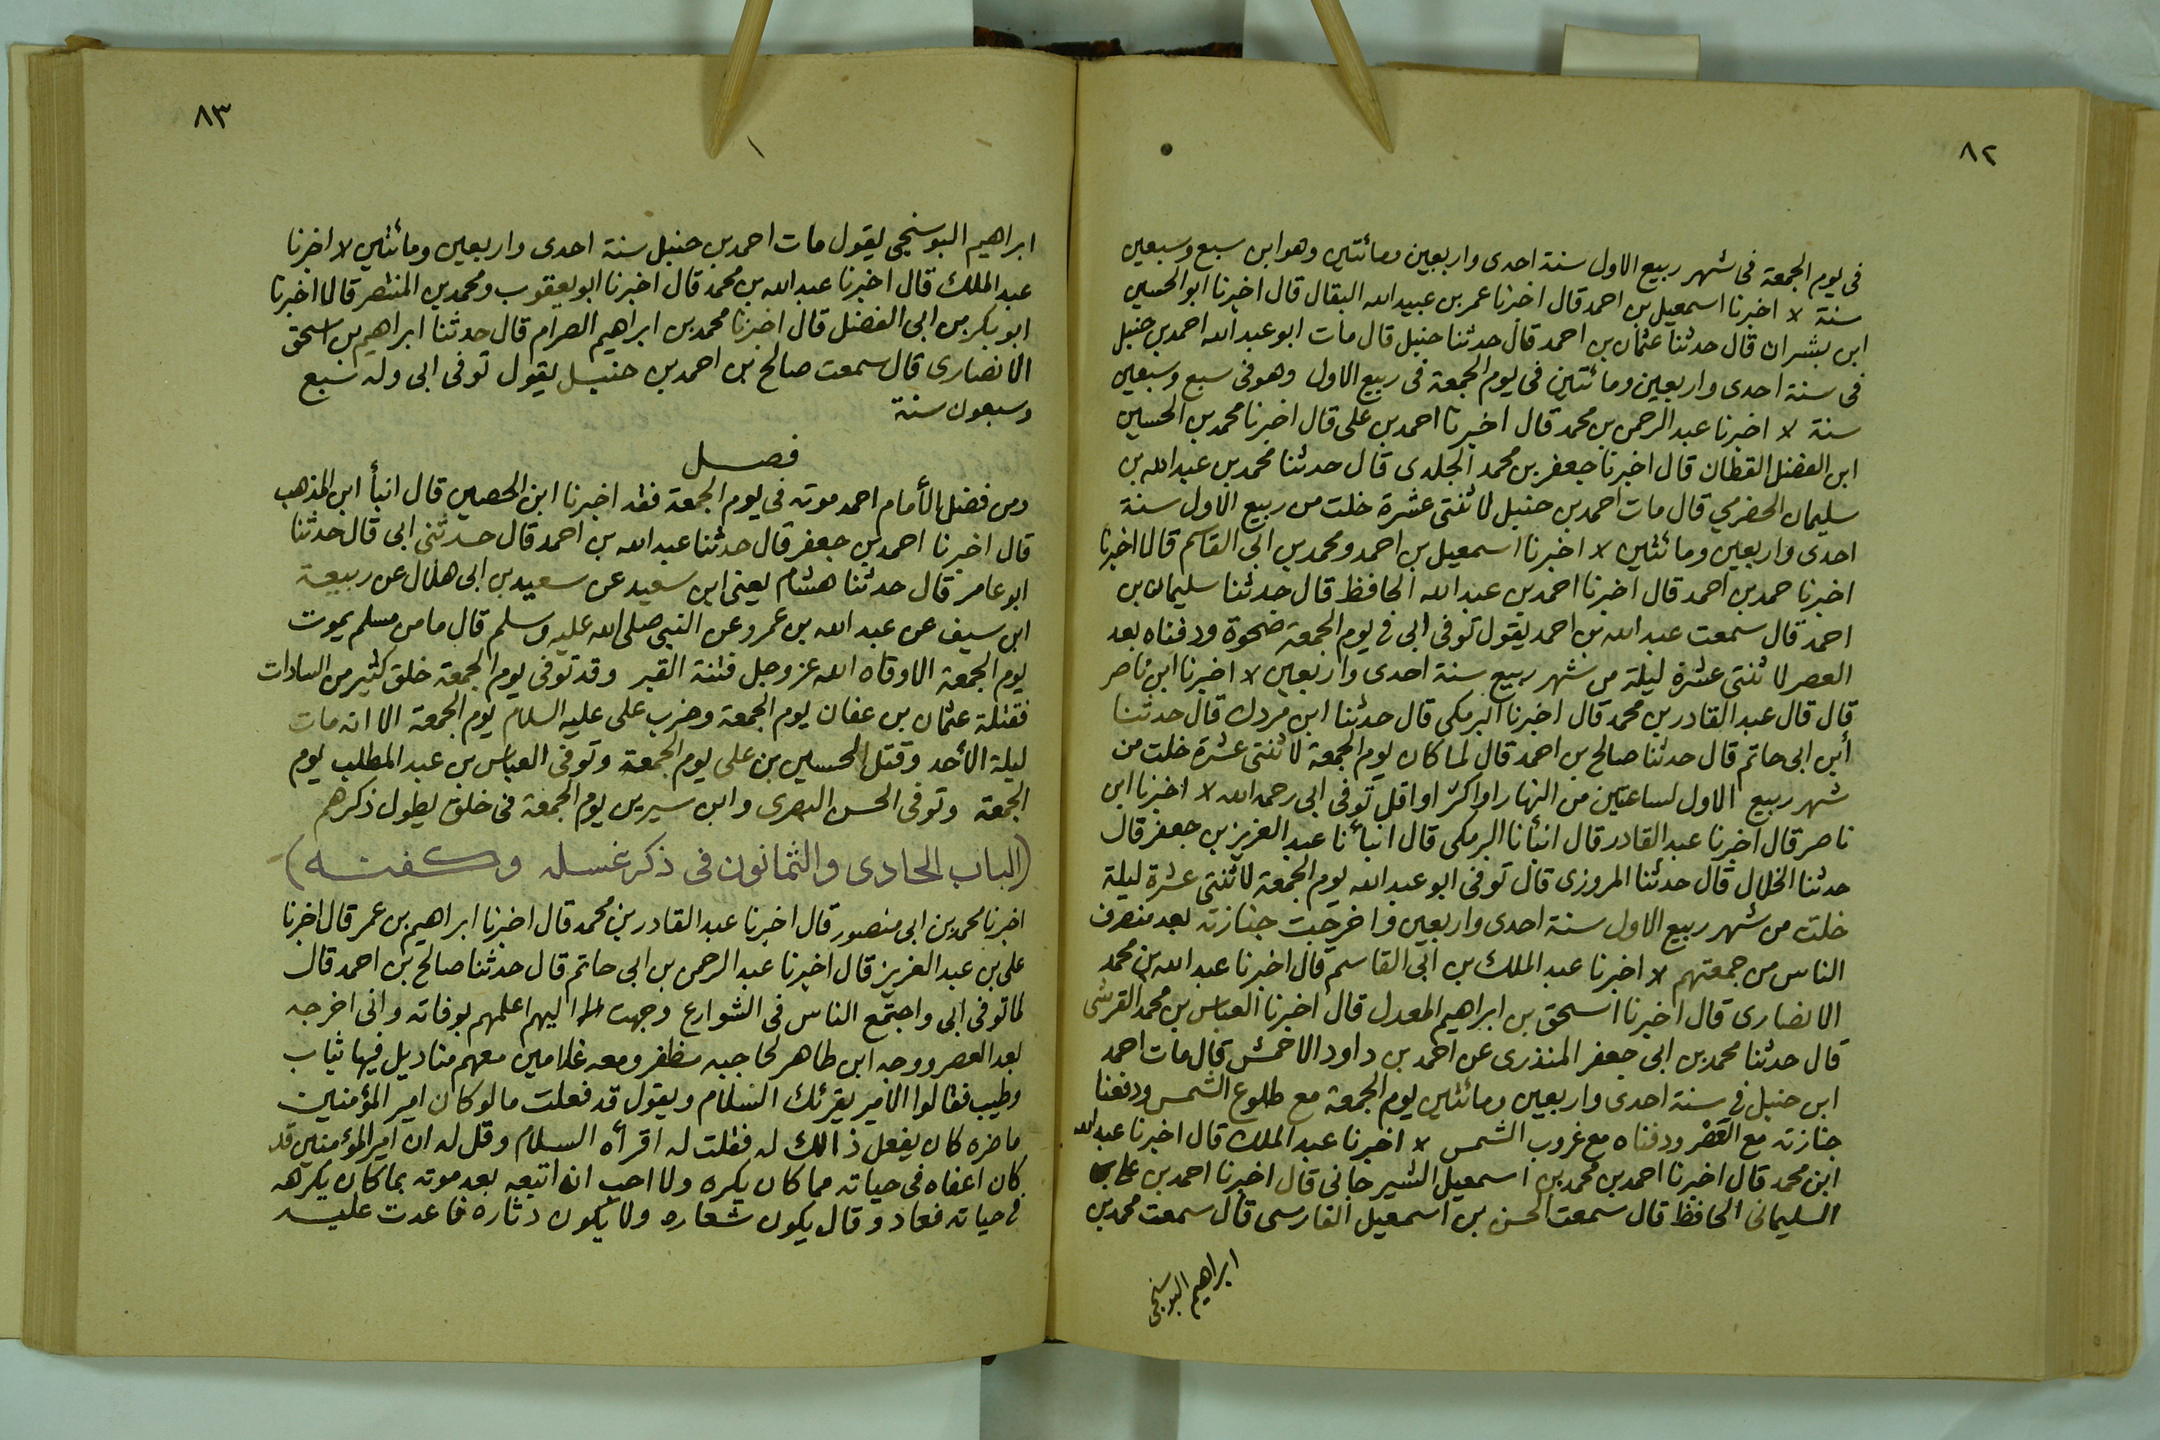 ٨٢
فى يوم الجمعة فى شهر ربيع الاول سنة احدى واربعين ومائتين وهو ابن سبع وسبعين
سنة لا اخبرنا اسمعيل بن احمد قال اخبرنا عمر بن عبيد الله البقال قال اخبرنا ابو الحسين
ابن بشران قال حدثنا عثمان بن احمد قال حدثنا حنبل قال مات ابو عبد الله احمد بن حنبل
فى سنة احدى واربعين ومائتين فى يوم الجمعة فى ربيع الاول وهو فى سبع وسبعين
سنة لا اخبرنا عبد الرحمن بن محمد قال اخبرنا احمد بن على قال اخبرنا محمد بن الحسين
ابن الفضل القطان قال اخبرنا جعفر بن محمد الجلدى قال حدثنا محمد بن عبد الله بن
سليمان الحضرمي قال مات احمد بن حنبل لا ثنتى عشرة خلت من ربيع الاول سنة
احدى واربعين ومائتين لا اخبرنا اسمعيل بن احمد ومحمد بن ابى القاسم قالا اخبرنا
اخبرنا حمد بن احمد قال اخبرنا احمد بن عبد الله الحافظ قال حدثنا سليمان بن
احمد قال سمعت عبد الله بن احمد يقول توفى ابى في يوم الجمعة ضحوة ودفناه بعد
العصر لا ثنتى عشرة ليلة من شهر ربيع سنة احدى واربعين لا اخبرنا ابن ناصر
قال قال عبد القادر بن محمد قال اخبرنا البرمكى قال حدثنا ابن مردك قال حدثنا
أبن ابى حاتم قال حدثنا صالح بن احمد قال لما كان يوم الجمعة لا ثنتى عشرة خلت من
شهر ربيع الاول لساعتين من النهار او اكثر او اقل توفى ابى رحمه الله لا اخبرنا ابن
ناصر قال اخبرنا عبد القادر قال انبأنا البرمكى قال انبأنا عبد العزيز بن جعفر قال
حدثنا الخلال قال حدثنا المروزى قال توفى ابو عبد الله يوم الجمعة لا ثنتى عشرة ليلة
خلت من شهر ربيع الاول سنة احدى واربعين واخرجت جنازته بعد منصرف
الناس من جمعتهم لا اخبرنا عبد الملك بن ابى القاسم قال اخبرنا عبد الله بن محمد
الانصارى قال اخبرنا اسحق بن ابراهيم المعدل قال اخبرنا العباس بن محمد القرشى
قال حدثنا محمد بن ابى جعفر المنذرى عن احمد بن داود الاحمش قال مات احمد
ابن حنبل في سنة احدى واربعين ومائتين يوم الجمعة مع طلوع الشمس ودفعنا
جنازته مع العصر ودفناه مع غروب الشمس لا اخبرنا عبد الملك قال اخبرنا عبد الله
ابن محمد قال اخبرنا احمد بن محمد بن اسمعيل الشيرجانى قال اخبرنا احمد بن على
السليمانى الحافظ قال سمعت الحسن بن اسمعيل الفارسى قال سمعت محمد بن
ابراهيم البوسنجى
٨٣
ابراهيم البوسنجى يقول مات احمد بن حنبل سنة احدى واربعين ومائتين لا اخبرنا
عبد الملك قال اخبرنا عبد الله بن محمد قال اخبرنا ابو يعقوب ومحمد بن المنتصر قالا اخبرنا
ابو بكر بن ابى الفضل قال اخبرنا محمد بن ابراهيم الصرام قال حدثنا ابراهيم بن اسحق
الانصارى قال سمعت صالح بن احمد بن حنبل يقول توفى ابى وله سبع
وسبعون سنة
فصل
ومن فضل الأمام احمد موته فى يوم الجمعة فقد اخبرنا ابن الحصين قال انبأ ابن المذهب
قال اخبرنا احمد بن جعفر قال حدثنا عبد الله بن احمد قال حدثنى ابى قال حدثنا
ابو عامر قال حدثنا هشام يعنى ابن سعيد عن سعيد بن ابى هلال عن ربيعة
ابن سيف عن عبد الله بن عمرو عن النبى صلى الله عليه وسلم قال ما من مسلم يموت
يوم الجمعة الا وقاه الله عز وجل فتنة القبر وقد توفى يوم الجمعة خلق كثير من السادات
فقتلة عثمان بن عفان يوم الجمعة وضرب على عليه السلام يوم الجمعة الا انه مات
ليلة الأحد وقتل الحسين بن على يوم الجمعة وتوفى العباس بن عبد المطلب يوم
الجمعة وتوفى الحسن البصرى وابن سيرين يوم الجمعة فى خلق يطول ذكرهم
(الباب الحادى والثمانون فى ذكر غسله وكفنه)
اخبرنا محمد بن ابى منصور قال اخبرنا عبد القادر بن محمد قال اخبرنا ابراهيم بن عمر قال اخبرنا
على بن عبد العزيز قال اخبرنا عبد الرحمن بن ابى حاتم قال حدثنا صالح بن احمد قال
لما توفى ابى واجتمع الناس فى الشوارع وجهت اليهم اعلمهم بوفاته وانى اخرجه
بعد العصر ووجه ابن طاهر لحاجبه مظفر ومعه غلامين معهم مناديل فيها ثياب
وطيب فقالوا الامير يقرئك السلام ويقول قد فعلت ما لو كان امير المؤمنين
ماضره كان يفعل ذالك له فقلت له اقرأه السلام وقل له ان امير المؤمنين قد
كان اعفاه فى حياته مما كان يكره ولا احب ان اتبعه بعد موته بما كان يكرهه
في حياته فعاد وقال يكون شعاره ولا يكون دثاره فاعدت عليه